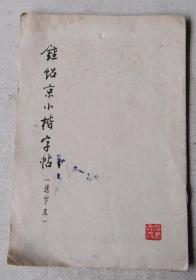 鍾绍京小楷字帖
(选字本)